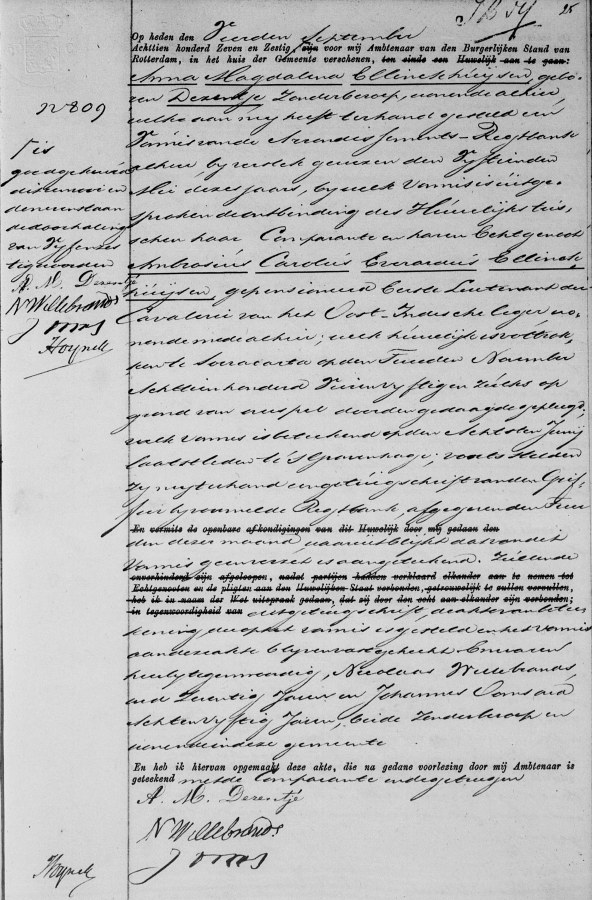 25
Op heden den Vierden September
Achttien honderd Zeven en Zestig, zijn voor mij Ambtenaar van den Burgerlijken Stand van
Rotterdam, in het huis der Gemeente verschenen, ten einde een Huwelijk aan te gaan:
Anna Magdalena Ellinckhuijsen, gebo-
ren Dezentje zonder beroep, wonende alhier,
welke aan mij heeft ter hand gesteld een
Vonnis van de Arrondissements-Regtbank
alhier bij verstek gewezen den Vijftienden
Mei dezes jaars, bij welk Vonnis is uitge-
sproken de ontbinding des Huwelijks tus-
schen haar Comparante en haren Echtgenoot
Ambrosius Carolus Everardus Ellinck-
huijsen, gepensioneerd Eerste Luitenant der
Cavalerie van het Oost-Indische leger wo-
nende mede alhier; welk huwelijk is voltrok-
ken te Soeracarta op den Tweeden November
Achttien honderd Vier en vijftig en zulks op
grond van overspel door den gedaagde gepleegd,
welk vonnis is beteekend op den Achtsten Junij
laatstleden te 's Gravenhage; voorts stelde
zij mij ter hand een getuigschrift van den Grif-
fier bij voormelde Regtbank, afgegeven den Twee
En vermits de openbare afkondigingen van dit Huwelijk door mij gedaan den
den dezer maand, waaruit blijkt dat van dit
Vonnis geen verzet is aangeteekend. Zullende
onverhinderd zijn afgeloopen, nadat partijen hadden verklaard elkander aan te nemen tot
Echtgenooten en de pligten aan den Huwelijken Staat verbonden, getrouwelijk te zullen vervullen,
heb ik in naam der Wet uitspraak gedaan, dat zij door den echt aan elkander zijn verbonden;
in tegenwoordigheid van dit getuigschrift, de acte van betee
kening, die op het vonnis is gesteld en het vonnis
aan deze akte blijven vastgehecht. En waren
hierbij tegenwoordig, Nicolaas Willebrands,
oud Zeventig Jaren en Johannes Ooms oud
Acht en vijftig Jaren, beide zonder beroep en
wonende in deze gemeente
En heb ik hiervan opgemaakt deze akte, die na gedane voorlezing door mij Ambtenaar is
geteekend met de Comparante en de getuigen
A. M. Dezentje
N Willebrands
J Ooms
Hoynck
No 809
Is
goedgekeurd
de
de doorhaling
van Vijf en zes
tig woorden
A. M. Dezentje
N Willebrands
J Ooms
Hoynck